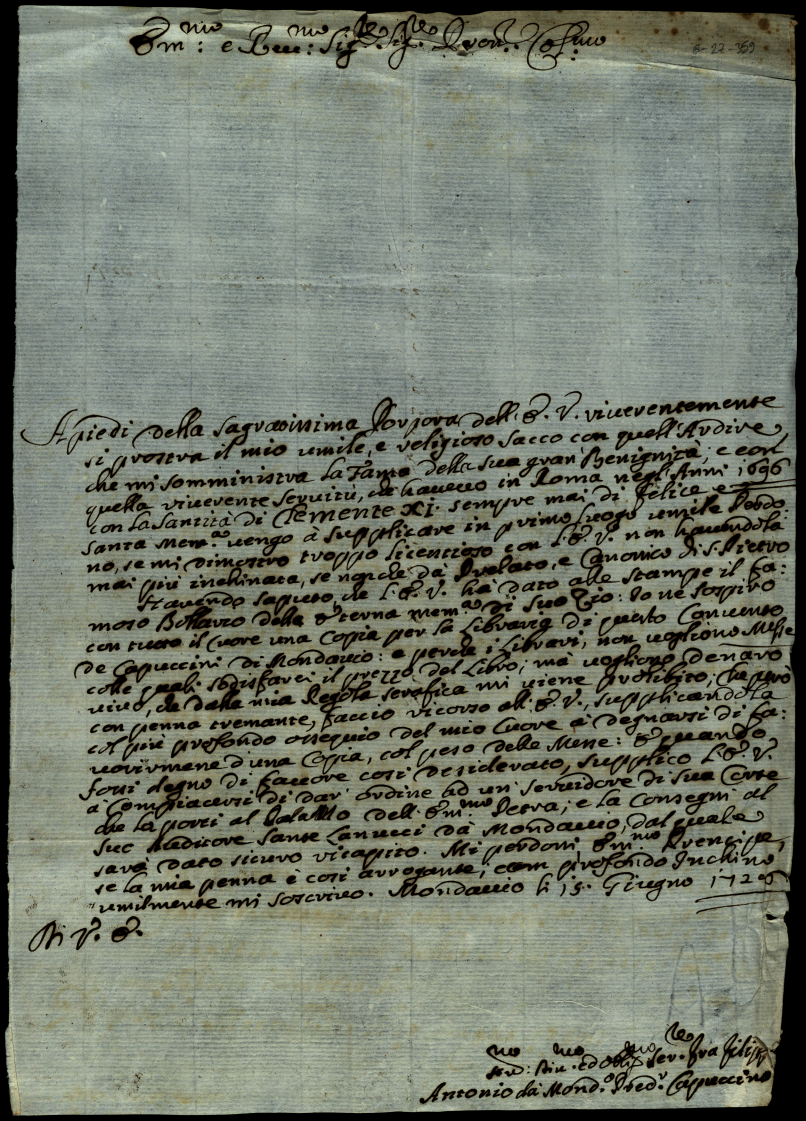 Em:mo e Rev:mo Sig.re Sig.re Pron.e Col:mo
6-22-359
A piedi della sagratissima Porpora dell'E. V. riverentemente
si prostra il mio umile, e religioso sacco con quell'Ardire
che mi somministra la Fama della sua gran Benignità; e con
quella riverente servitù, ch'havevo in Roma negl'Anni 1696
con la Santità di Clemente XI. sempre mai di felice e
santa Mem.a vengo à supplicare in primo luogo umile Perdo:
no, se mi dimostro troppo licentioso con l'E. V. non havendola
mai più inchinata, se non da Prelato, e Canonico di S. Pietro
Havendo saputo, che l'E. V. hà dato alle stampe il fa:
moso Bollario della Eterna mem.a di suo Zio: Io ne sospiro
con tutto il cuore una Copia per la Libraria di questo Convento
de Capuccini di Mondavio: e perche i Librari, non vogliono Messe
colle quali sodisfarei il prezzo del Libro; mà vogliono denaro
vivo, che dalla mia Regola serafica mi viene proibito; Là però
con penna tremante, faccio ricorso all'E. V., supplicandola
col più profondo ossequio del mio Cuore à degnarsi di fa:
vorirmene d'una Copia, col peso delle Messe: E quando
fossi degno di favore così desiderato, supplico l'E. V.
à Compiacersi di dar' ordine ad un servidore di sua Corte
che la porti al Palazzo dell'Em:mo Petra; e la Consegni al
suo Auditore Sante Lanucci da Mondavio, dal quale
sarà dato sicuro ricapito. Mi perdoni Em:mo Prencipe,
se la mia penna è così arrogante, e con profondo Inchino
umilmente mi soscrivo. Mondavio li 15. Giugno 1726
Di V. E.
Um:mo Div.mo ed Obl.mo Ser.re Fra Filipp
Antonio da Mond.o Pred.r Cappuccino